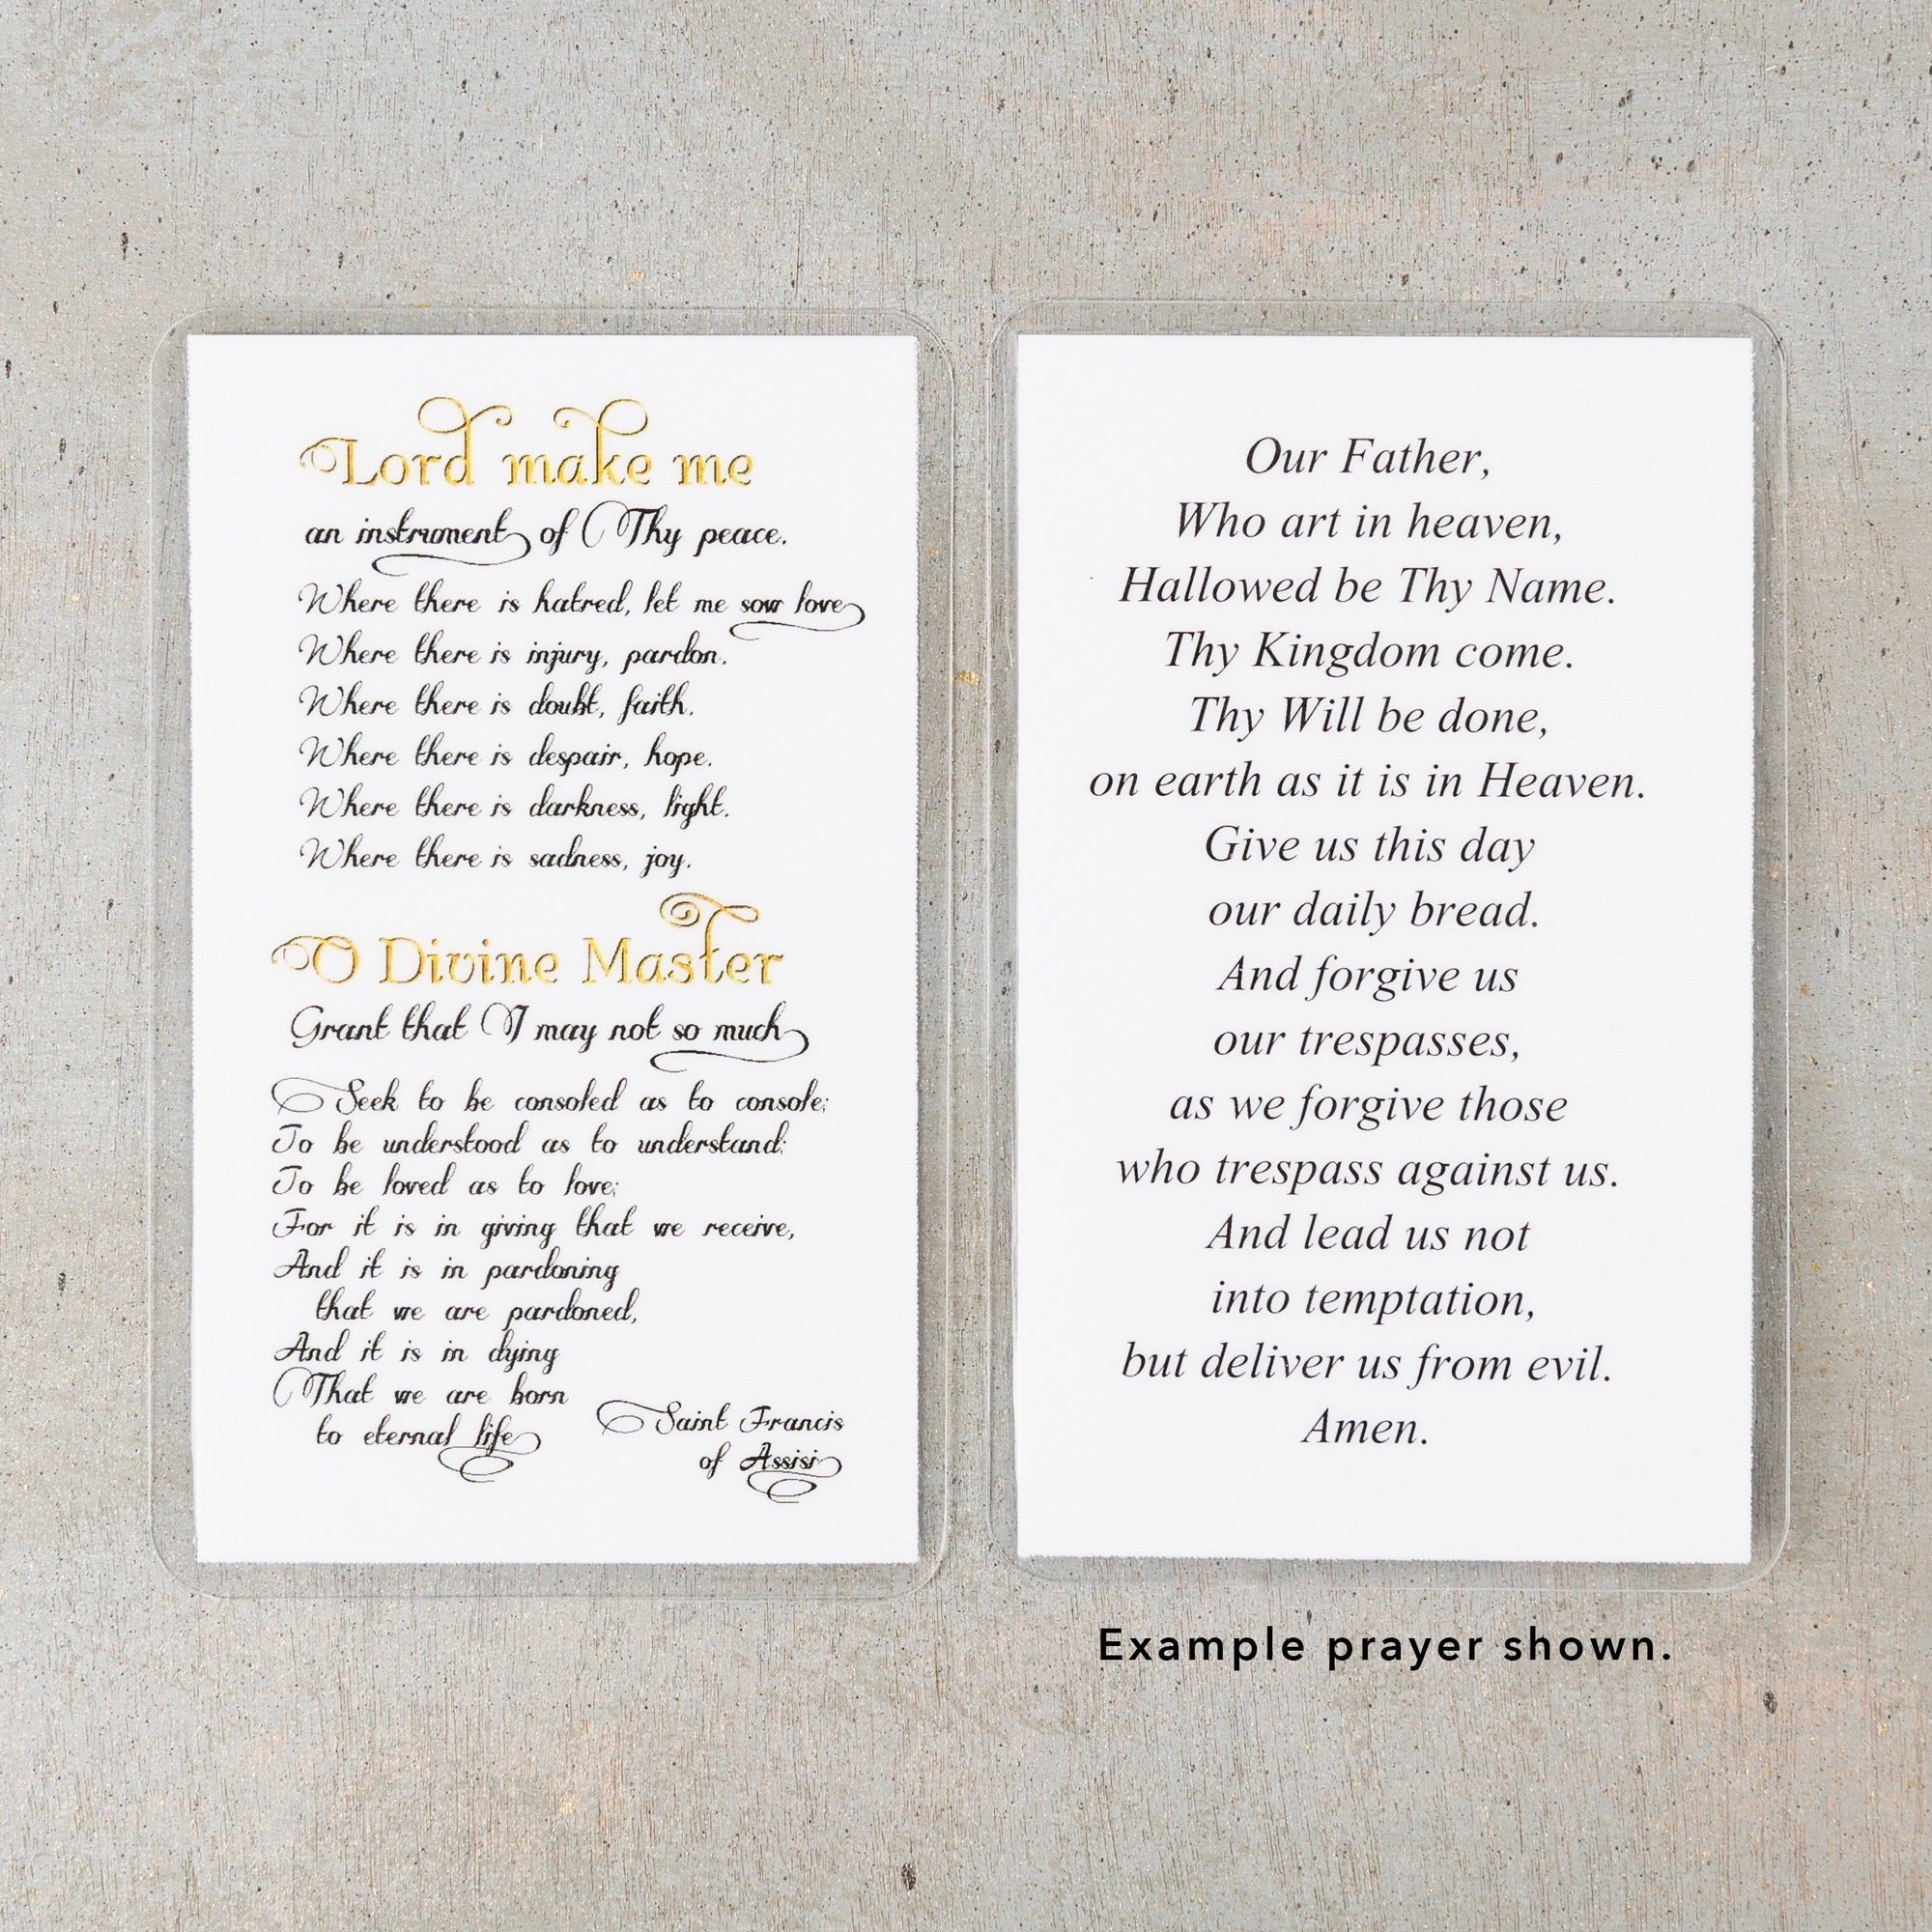 Lord make me
an instrument of Thy peace.
Where there is hatred, let me sow love
Where there is injury, pardon.
Where there is doubt, faith.
Where there is despair, hope.
Where there is darkness, light.
Where there is sadness, joy.
O Divine Master
Grant that I may not so much
Seek to be consoled as to console;
To be understood as to understand;
To be loved as to love;
For it is in giving that we receive,
And it is in pardoning
that we are pardoned,
And it is in dying
That we are born
to eternal life
Saint Francis
of Assisi
Our Father,
Who art in heaven,
Hallowed be Thy Name.
Thy Kingdom come.
Thy Will be done,
on earth as it is in Heaven.
Give us this day
our daily bread.
And forgive us
our trespasses,
as we forgive those
who trespass against us.
And lead us not
into temptation,
but deliver us from evil.
Amen.
Example prayer shown.